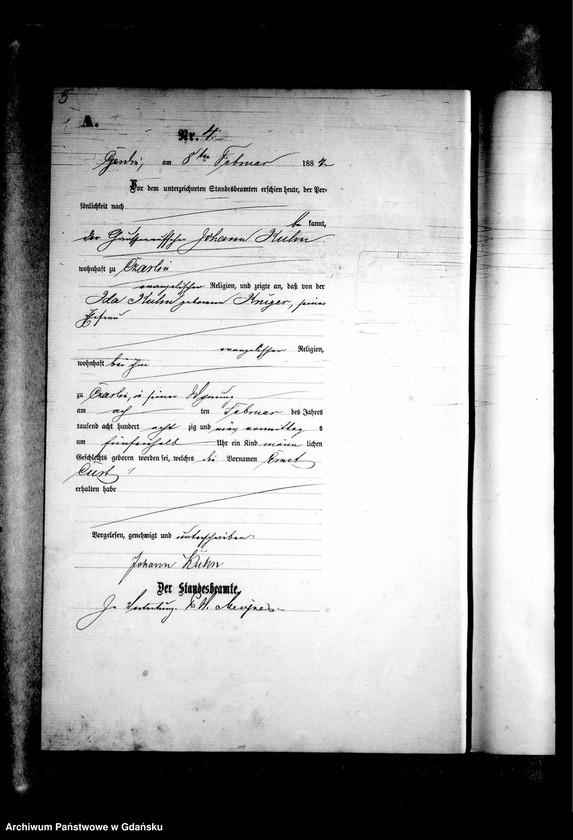 5
A.
Nr. 4.
am 8ten Februar 1884
Vor dem unterzeichneten Standesbeamten erschien heute, der Per-
sönlichkeit nach
be kannt,
der Johann Kühn
wohnhaft zu Czarlin
evangelischer Religion, und zeigte an, daß von der
Ida Kühn geborene Krüger, seiner
Ehefrau
evangelischer Religion,
wohnhaft bei ihm
zu Czarlin, in seiner Wohnung
am ten Februar des Jahres
tausend acht hundert acht zig und vier vormittag s
um fünfeinhalb Uhr ein Kind männ lichen
Geschlechts geboren worden sei, welches die Vornamen Ernst
erhalten habe
Vorgelesen, genehmigt und unterschrieben
Johann Kühn
Der Standesbeamte.
In Vertretung.
Archiwum Państwowe w Gdańsku